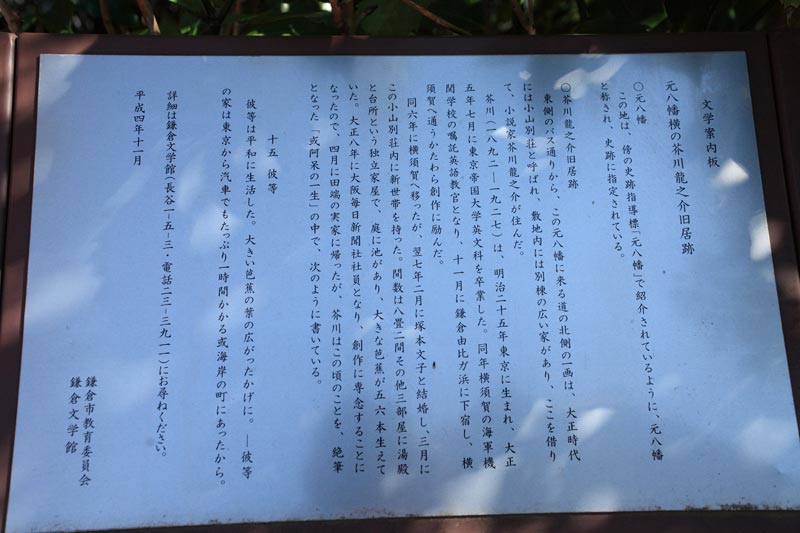 文学案内板
元八幡横の芥川龍之介旧居跡
○元八幡
この地は、傍の史跡指導標「元八幡」で紹介されているように、元八幡
と称され、史跡に指定されている。
○芥川龍之介旧居跡
東側のバス通りから、この元八幡に来る道の北側の一画は、大正時代
には小山別荘と呼ばれ、敷地内には別棟の広い家があり、ここを借り
て、小説家芥川龍之介が住んだ。
芥川(一八九二―一九二七)は、明治二十五年東京に生まれ、大正
五年七月に東京帝国大学英文科を卒業した。同年横須賀の海軍機
関学校の嘱託英語教官となり、十一月に鎌倉由比ガ浜に下宿し、横
須賀へ通うかたわら創作に励んだ。
同六年に横須賀へ移ったが、翌七年二月に塚本文子と結婚し、三月に
この小山別荘内に新世帯を持った。間数は八畳二間その他三部屋に湯殿
と台所という独立家屋で、庭に池があり、大きな芭蕉が五六本生えて
いた。大正八年に大阪毎日新聞社社員となり、創作に専念することに
なったので、四月に田端の実家に帰ったが、芥川はこの頃のことを、絶筆
となった「或阿呆の一生」の中で、次のように書いている。
十五 彼等
彼等は平和に生活した。大きい芭蕉の葉の広がったかげに。―彼等
の家は東京から汽車でもたっぷり一時間かかる或海岸の町にあったから。
詳細は鎌倉文学館(長谷一-五-三・電話二三-三九一一)にお尋ねください。
平成四年十一月
鎌倉市教育委員会
鎌倉文学館